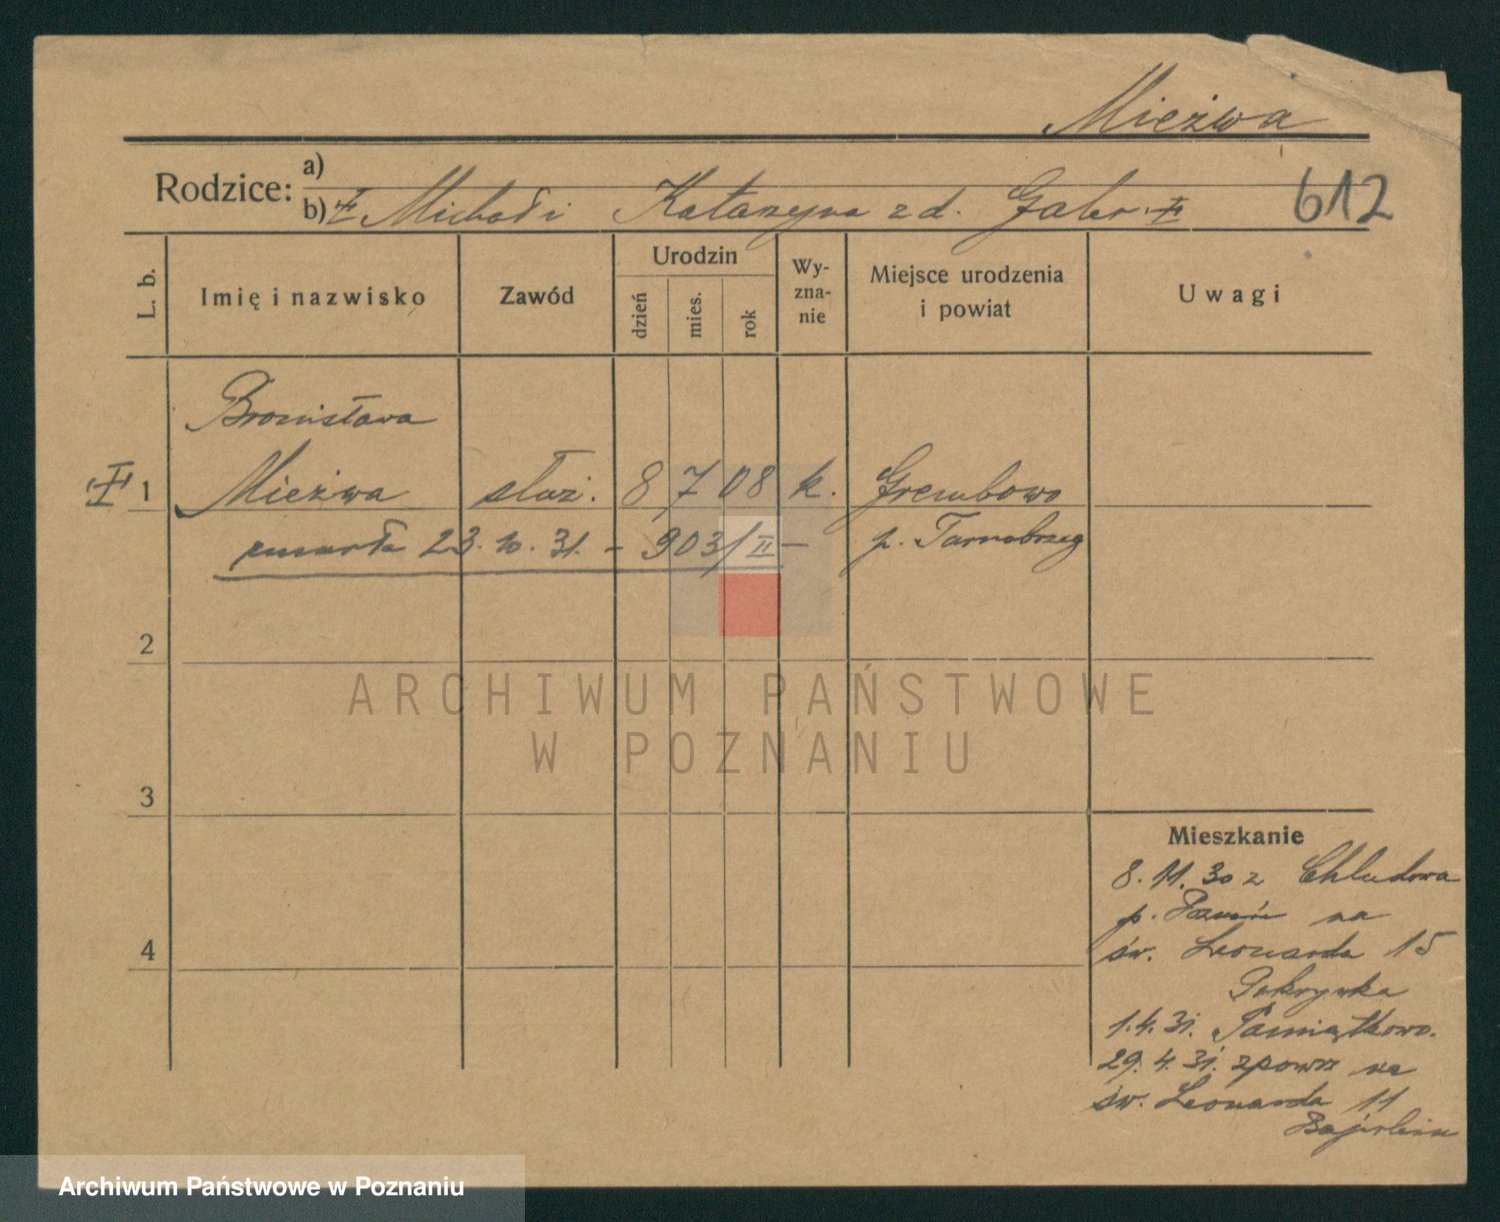 Mieżwa
Rodzice:
a)
b) Michał i Katarzyna z d. Gaber
612
L. b.
Imię i nazwisko
Zawód
Urodzin
dzień
mies.
rok
Wy-
zna-
nie
Miejsce urodzenia
i powiat
Uwagi
Bronisława
1 Mieżwa służ. 8 7 08 k. Grembowo
zmarła 23.10.31. - 903/II - p. Tarnobrzeg
2
3
4
Mieszkanie
8.11.30 z Chludowa
p. Poznań na
św. Leonarda 15
Pokrywka
1.4.31. Pamiątkowo.
29.4.31. zpowr na
św. Leonarda 11
ARCHIWUM PAŃSTWOWE
W POZNANIU
Archiwum Państwowe w Poznaniu